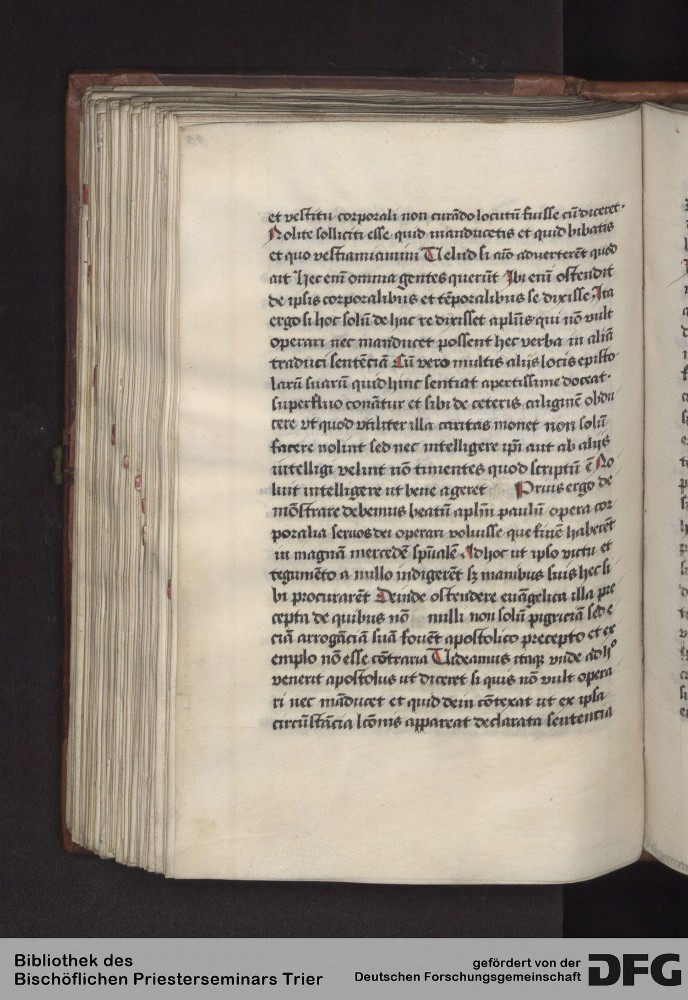 et vestitu corporali non curādo locutū fuisse cū diceret·
Nolite solliciti esse quid manducetis et quid bibatis
et quo vestiamiamini Velud si aīo adverterēt quod
ait Hec enī omnia gentes querūt Ibi enī ostendit
de ipsis corporalibus et tēporalibus se dixisse· Ita
ergo si hoc solū de hac re dixisset aplūs· qui nō vult
operari nec manducet possent hec verba in aliā
traduci sentēciā Cū vero multis alijs locis episto
larū suarū quid hinc sentiat apertissime doceat·
superfluo conātur et sibi de ceteris caliginē obdu
cere ut quod utiliter illa caritas monet non solū
facere nolint sed nec intelligere ip̄i aut ab alijs
intelligi velint nō timentes quod scriptū ē No
luit intelligere ut bene ageret Prius ergo de
mōstrare debemus beatū aplm̄ paulū opera cor
poralia servos dei operari voluisse que finē haberēt
in magnā mercedē sp̄ualē Ad hoc ut ipso victu et
tegumēto a nullo indigerēt sȝ manibus suis hec si
bi procurarēt Deinde ostendere euāgelica illa pre
cepta de quibus nō nulli non solū pigriciā sed e
ciā arrogāciā suā fouēt apostolico precepto et ex
emplo nō esse cōtraria Uideamus itaqȝ unde ad hº
venerit apostolus ut diceret si quis nō vult opera
ri nec māducet et quid dein cōtexat ut ex ipsa
circūstācia lc̄onis appareat declarata sentencia
Bibliothek des
Bischöflichen Priesterseminars Trier
gefördert von der
Deutschen Forschungsgemeinschaft
DFG